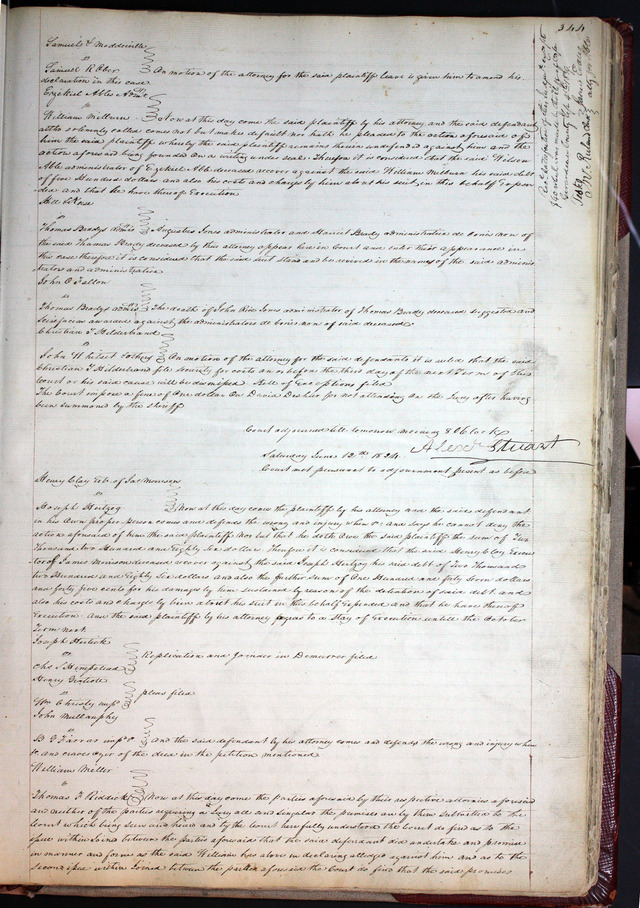 344
Samuels & Moddeville
vs
Samuel R Ober On motion of the attorney for the said plaintiff leave is given him to amend his
declaration in this case
Ezekiel Able's Admr
vs
William Milburn Now at this day come the said plaintiff by his attorney and the said defendant
altho solemnly called comes not but makes default nor hath he pleaded to the action aforesaid of
him the said plaintiff whereby the said plaintiff remains therein undefended against him and the
action aforesaid being founded on a writing under seal. Therefore it is considered that the said Wilson
Able administrator of Ezekiel Able deceased recover against the said William Milburn his said debt
of five Hundred dollars and also his costs and charges by him about his suit in this behalf expen
ded and that he have thereof Execution
vs
Thomas Bradys Admrs Augustus Jones administrator and Harriet Brady administratrix de bonis non of
the said Thomas Brady deceased by their attorney appear here in Court and enter their appearance in
this case therefore it is considered that the said suit stand and be revived in the names of the said adminis
trators and administratrix
John O Fallon
vs
Thomas Bradys admrs The death of John Rice Jones administrator of Thomas Brady deceased suggested and
Scirefacias awarded against the administrators de bonis non of said deceased
Christian T Hilderbrand
vs
John White On motion of the attorney for the said defendants it is ruled that the said
Christian T Hilderbrand file security for costs on or before the third day of the next Term of this
Court or his said cause will be dismissed. Bill of Exceptions filed
The Court impose a fine of One dollar on David Deshler for not attending on the Jury after having
been summoned by the sheriff
Court adjourned till tomorrow morning 8 OClock
Alexr Stuart
Saturday June 12th 1824
Court met pursuant to adjournment present as before
Henry Clay Exr. of Jas Morrison
vs
Joseph Hertzog Now at this day comes the plaintiff by his attorney and the said defendant
in his own proper person comes and defends the wrong and injury when &c and says he cannot deny the
action aforesaid of him the said plaintiff Nor but that he doth owe the said plaintiff the sum of Two
Thousand two Hundred and Eighty Six dollars. Therefore it is considered that the said Henry Clay Execu
tor of James Morrison deceased recover against the said Joseph Hertzog his said debt of Two Thousand
two Hundred and Eighty Six dollars and also the further sum of One Hundred and forty seven dollars
and forty five cents for his damages by him sustained by reason of the detention of said debt and
also his costs and charges by him about his suit in this behalf Expended and that he have thereof
Execution. And the said plaintiff by his attorney agrees to a Stay of Execution untill the October
Term next
Joseph
vs
Chs S Hempstead Replication and Joinder in Demurrer filed
Henry
vs
Wm Christy impd pleas filed
John Mullanphy
vs
B G Farrar impd &c and the said defendant by his attorney comes and defends the wrong and injury when
&c and craves oyer of the deed in the petition mentioned
William Miller
vs
Thomas F Riddick Now at this day come the parties aforesaid by their respective attornies aforesaid
and neither of the parties requiring a Jury all and singular the premises are by them submitted to the
Court which being seen and heard and by the Court here fully understood the Court do find as to the
issue within Joined between the parties aforesaid that the said defendant did undertake and promise
in manner and form as the said William has above in declaring alledged against him and as to the
second issue within Joined between the parties aforesaid the Court do find that the said promises